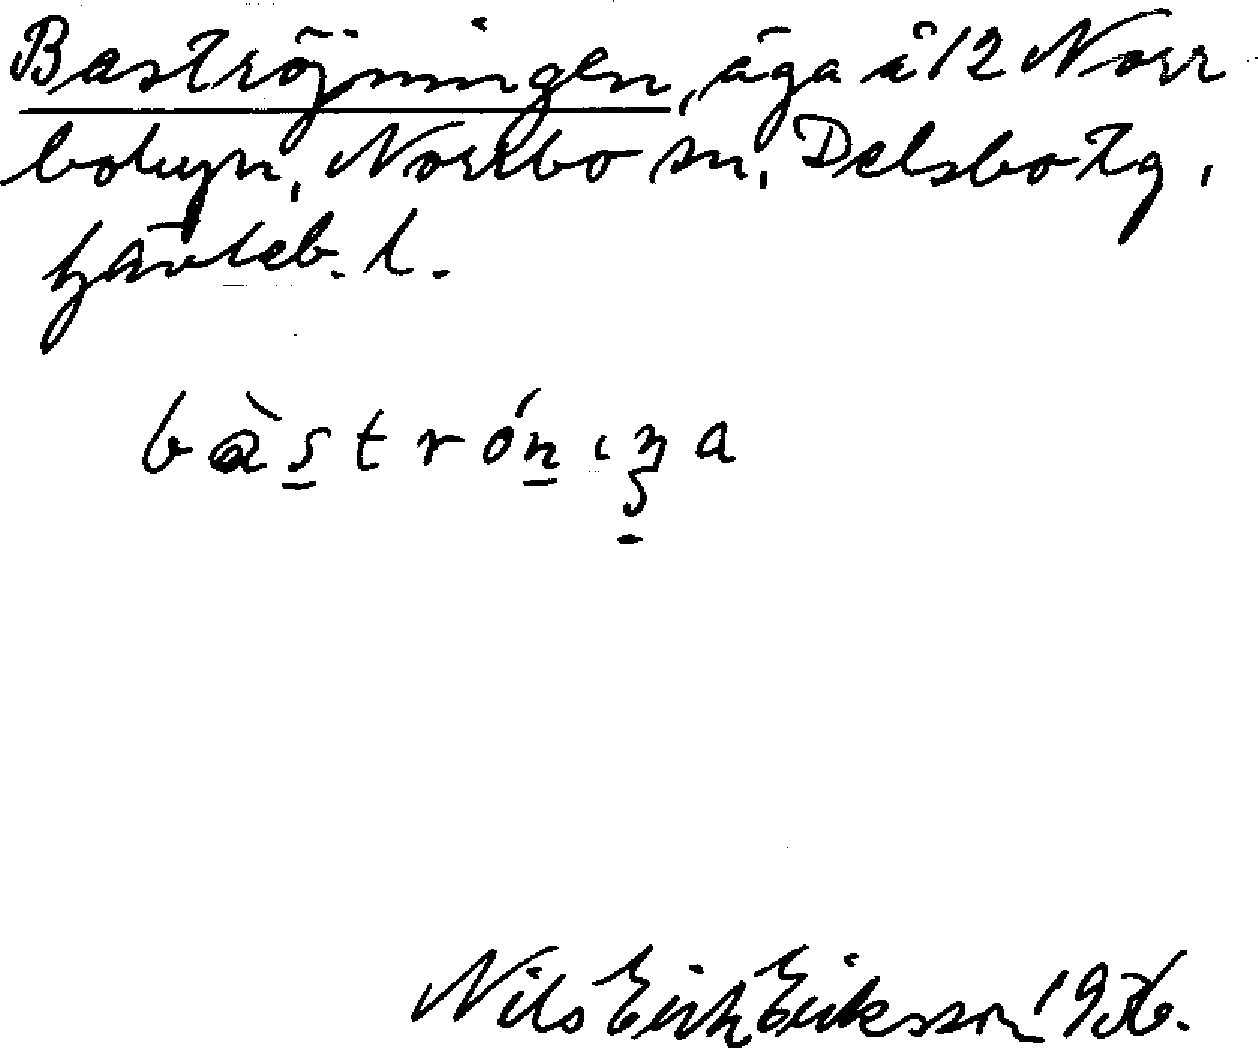 Baströjningen, äga å 12 Norr
bobyn, Norrbo sn, Delsbo tg,
Gävleb. l.
bàstrónıŋa
Nils Erik Eriksson 1936.